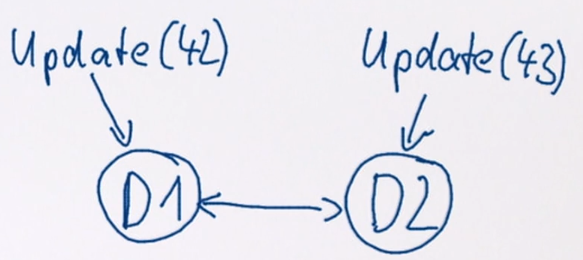 Update(42) Update(43)
D1 D2